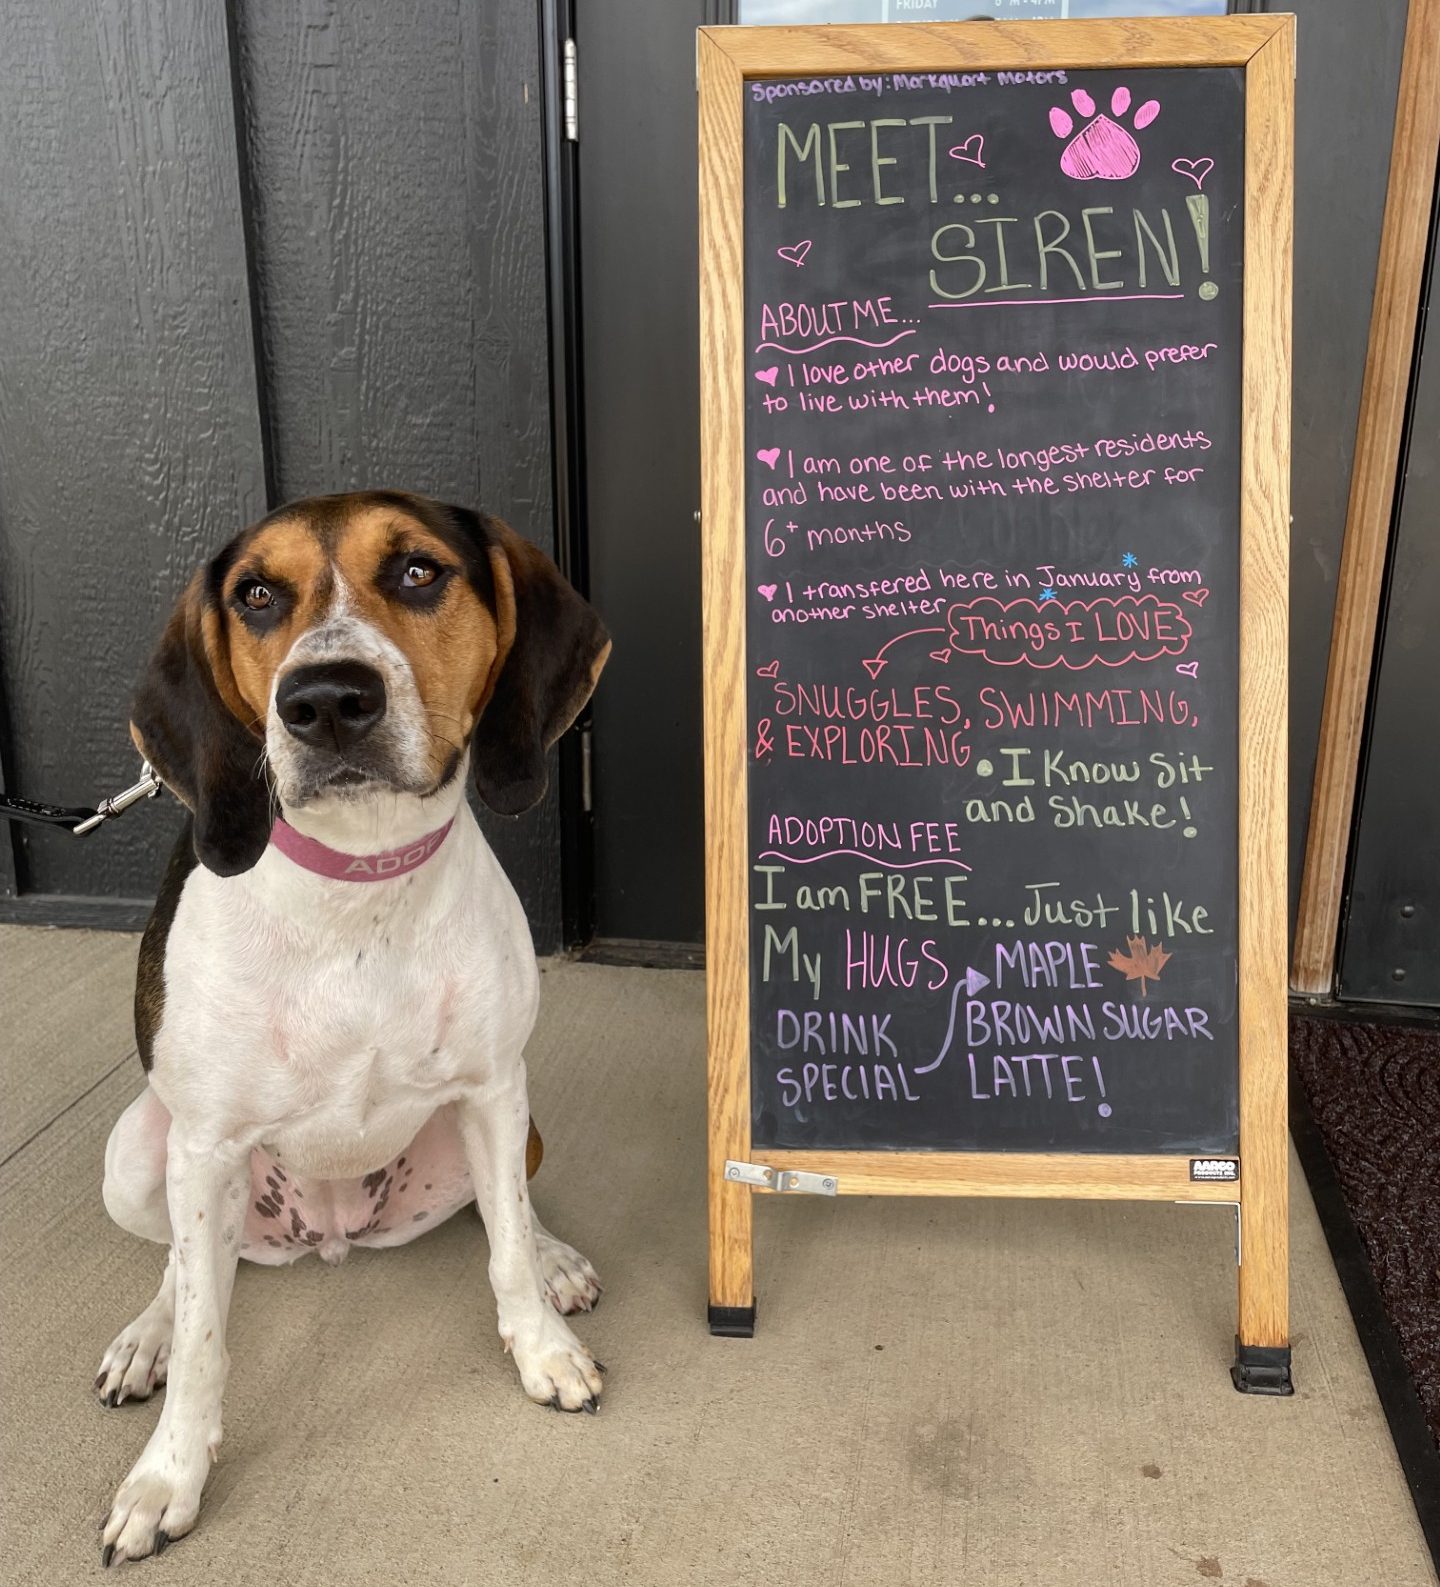 FRIDAY
Sponsored by: Markquart Motors
MEET...
SIREN!
ABOUT ME...
I love other dogs and would prefer
to live with them!
I am one of the longest residents
and have been with the shelter for
6+ months
I transfered here in January from
another shelter
Things I LOVE
SNUGGLES, SWIMMING,
& EXPLORING
• I Know Sit
and Shake!
ADOPTION FEE
I am FREE... Just like
My HUGS
DRINK
SPECIAL
MAPLE
BROWN SUGAR
LATTE!
AARCO
PRODUCTS INC.
ADOP